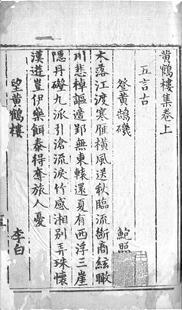 黄鶴樓集卷上
五言古
登黄鶴磯
鮑照
木落江渡寒雁横風送秋臨流斷商絃瞰
川悲棹謳適郢無東轅還夏有西浮三崖
隱丹磴九派引滄流淚竹感湘别弄珠懷
漢遊豈伊樂餌泰得奪旅人憂
望黄鶴樓
李白